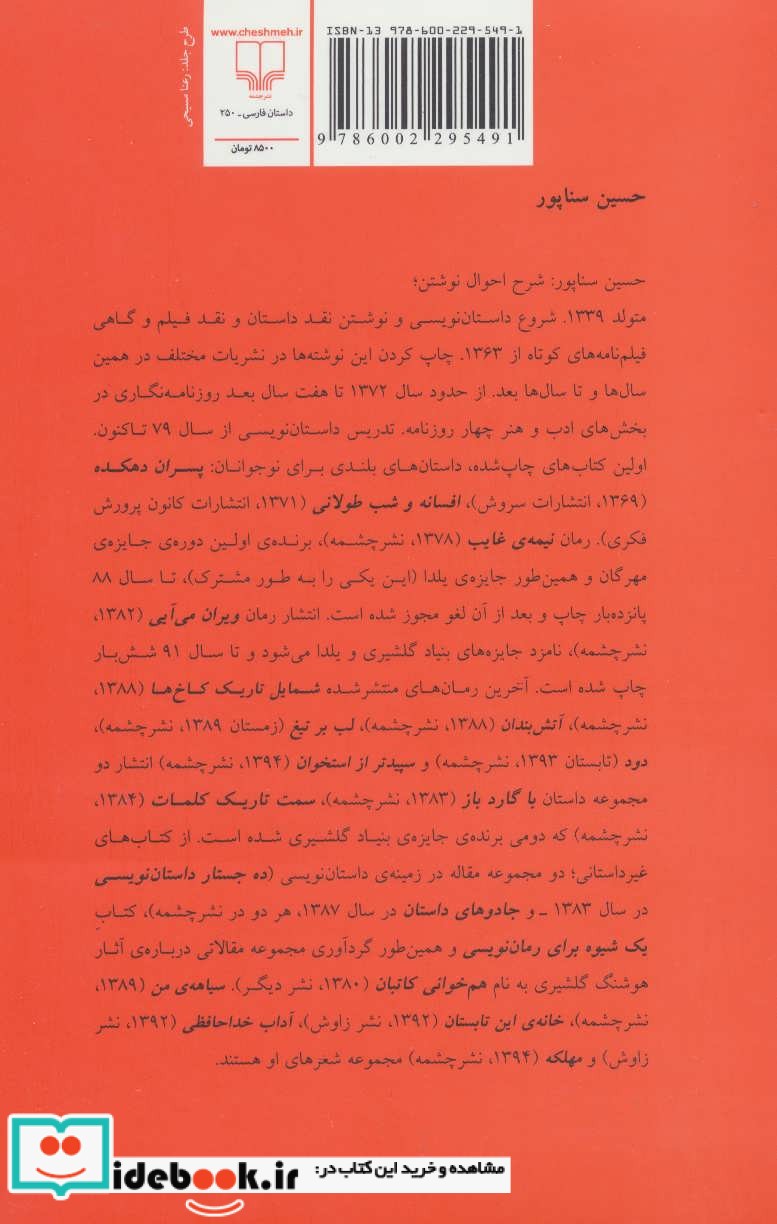 طرح جلد: رعنا مسیحی
www.cheshmeh.ir
نشرچشمه
داستان فارسی ـ ۲۵۰
۸۵۰۰ تومان
ISBN-13 978-600-229-549-1
9 786002 295491
حسین سناپور
حسین سناپور: شرح احوال نوشتن؛
متولد ۱۳۳۹. شروع داستان‌نویسی و نوشتن نقد داستان و نقد فیلم و گاهی
فیلم‌نامه‌های کوتاه از ۱۳۶۳. چاپ کردن این نوشته‌ها در نشریات مختلف در همین
سال‌ها و تا سال‌ها بعد. از حدود سال ۱۳۷۲ تا هفت سال بعد روزنامه‌نگاری در
بخش‌های ادب و هنر چهار روزنامه. تدریس داستان‌نویسی از سال ۷۹ تاکنون.
اولین کتاب‌های چاپ‌شده، داستان‌های بلندی برای نوجوانان: پسران دهکده
(۱۳۶۹، انتشارات سروش)، افسانه و شب طولانی (۱۳۷۱، انتشارات کانون پرورش
فکری). رمان نیمه‌ی غایب (۱۳۷۸، نشرچشمه)، برنده‌ی اولین دوره‌ی جایزه‌ی
مهرگان و همین‌طور جایزه‌ی یلدا (این یکی را به طور مشترک)، تا سال ۸۸
پانزده‌بار چاپ و بعد از آن لغو مجوز شده است. انتشار رمان ویران می‌آیی (۱۳۸۲،
نشرچشمه)، نامزد جایزه‌های بنیاد گلشیری و یلدا می‌شود و تا سال ۹۱ شش‌بار
چاپ شده است. آخرین رمان‌های منتشرشده شمایل تاریک کاخ‌ها (۱۳۸۸،
نشرچشمه)، آتش‌بندان (۱۳۸۸، نشرچشمه)، لب بر تیغ (زمستان ۱۳۸۹، نشرچشمه)،
دود (تابستان ۱۳۹۳، نشرچشمه) و سپیدتر از استخوان (۱۳۹۴، نشرچشمه) انتشار دو
مجموعه داستان با گارد باز (۱۳۸۳، نشرچشمه)، سمت تاریک کلمات (۱۳۸۴،
نشرچشمه) که دومی برنده‌ی جایزه‌ی بنیاد گلشیری شده است. از کتاب‌های
غیرداستانی؛ دو مجموعه مقاله در زمینه‌ی داستان‌نویسی (ده جستار داستان‌نویسی
در سال ۱۳۸۳ ـ و جادوهای داستان در سال ۱۳۸۷، هر دو در نشرچشمه)، کتابِ
یک شیوه برای رمان‌نویسی و همین‌طور گردآوری مجموعه مقالاتی درباره‌ی آثار
هوشنگ گلشیری به نام هم‌خوانی کاتبان (۱۳۸۰، نشر دیگر). سیاهه‌ی من (۱۳۸۹،
نشرچشمه)، خانه‌ی این تابستان (۱۳۹۲، نشر زاوش)، آداب خداحافظی (۱۳۹۲، نشر
زاوش) و مهلکه (۱۳۹۴، نشرچشمه) مجموعه شعرهای او هستند.
مشاهده و خرید این کتاب در:
idebook.ir